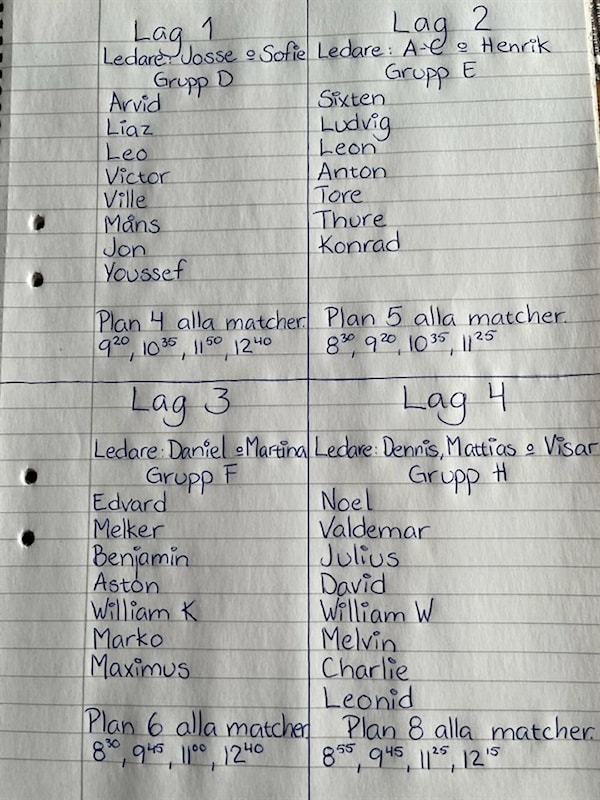 Lag 1
Ledare: Josse o Sofie
Grupp D
Arvid
Liaz
Leo
Victor
Ville
Måns
Jon
Youssef
Plan 4 alla matcher.
9²⁰, 10³⁵, 11⁵⁰, 12⁴⁰
Lag 2
Ledare: A-C o Henrik
Grupp E
Sixten
Ludvig
Leon
Anton
Tore
Thure
Konrad
Plan 5 alla matcher.
8³⁰, 9²⁰, 10³⁵, 11²⁵
Lag 3
Ledare: Daniel o Martina
Grupp F
Edvard
Melker
Benjamin
Aston
William K
Marko
Maximus
Plan 6 alla matcher
8³⁰, 9⁴⁵, 11⁰⁰, 12⁴⁰
Lag 4
Ledare: Dennis, Mattias o Visar
Grupp H
Noel
Valdemar
Julius
David
William W
Melvin
Charlie
Leonid
Plan 8 alla matcher.
8⁵⁵, 9⁴⁵, 11²⁵, 12¹⁵